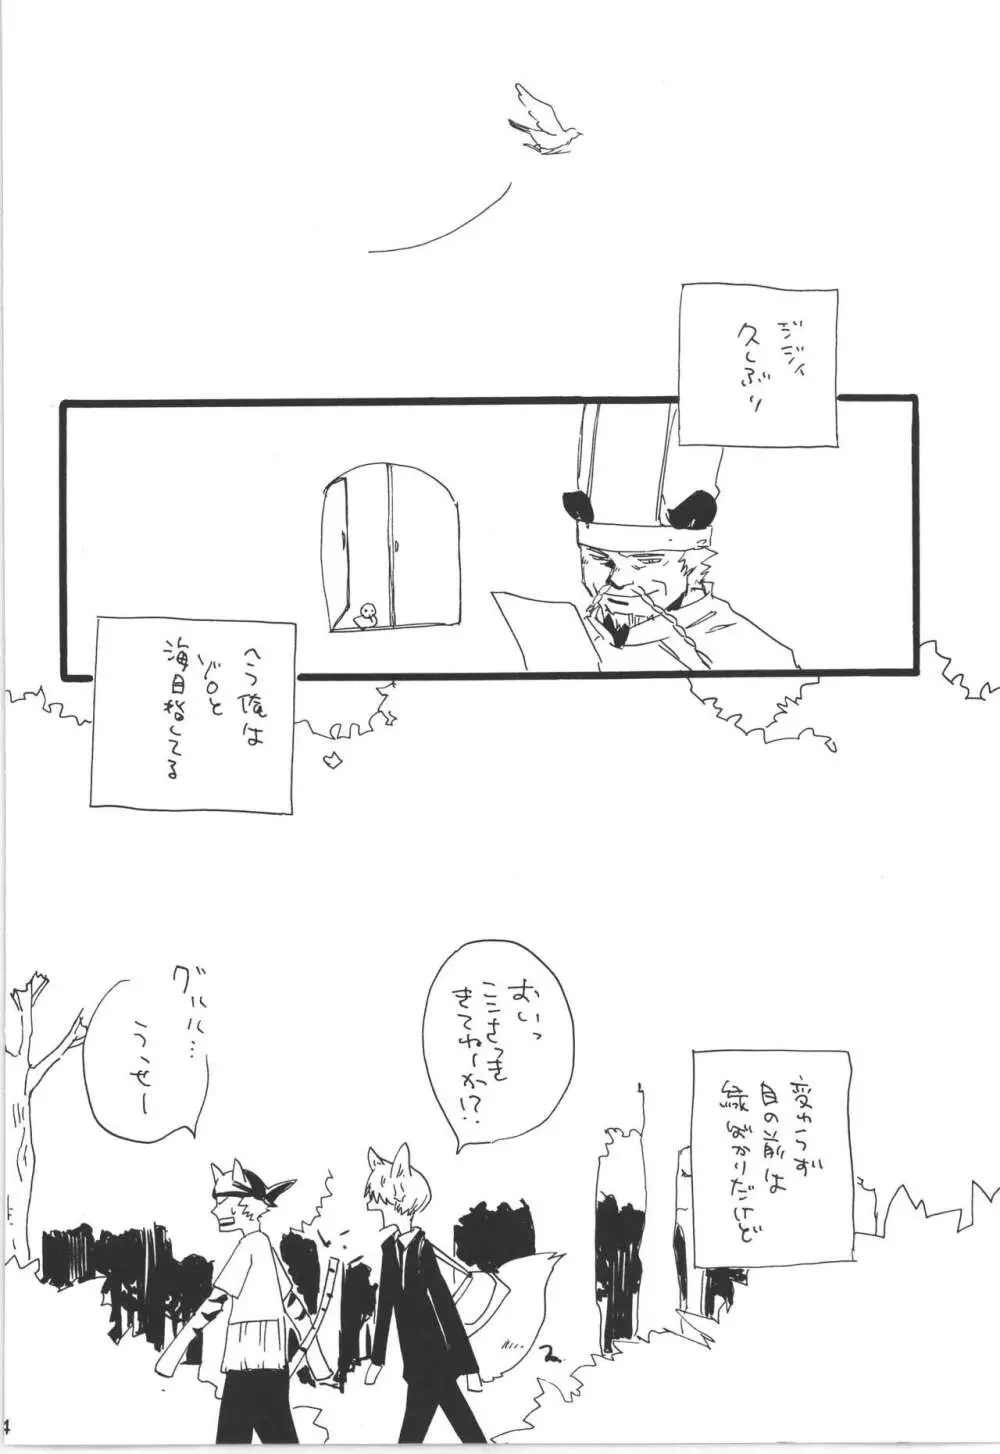 ジジィ
久しぶり
今俺は
ゾロと
海目指してる
変わらず
目の前は
緑ばかりだけど
おいっ
ここさっき
きてねーか!?
グルル…
うっせー